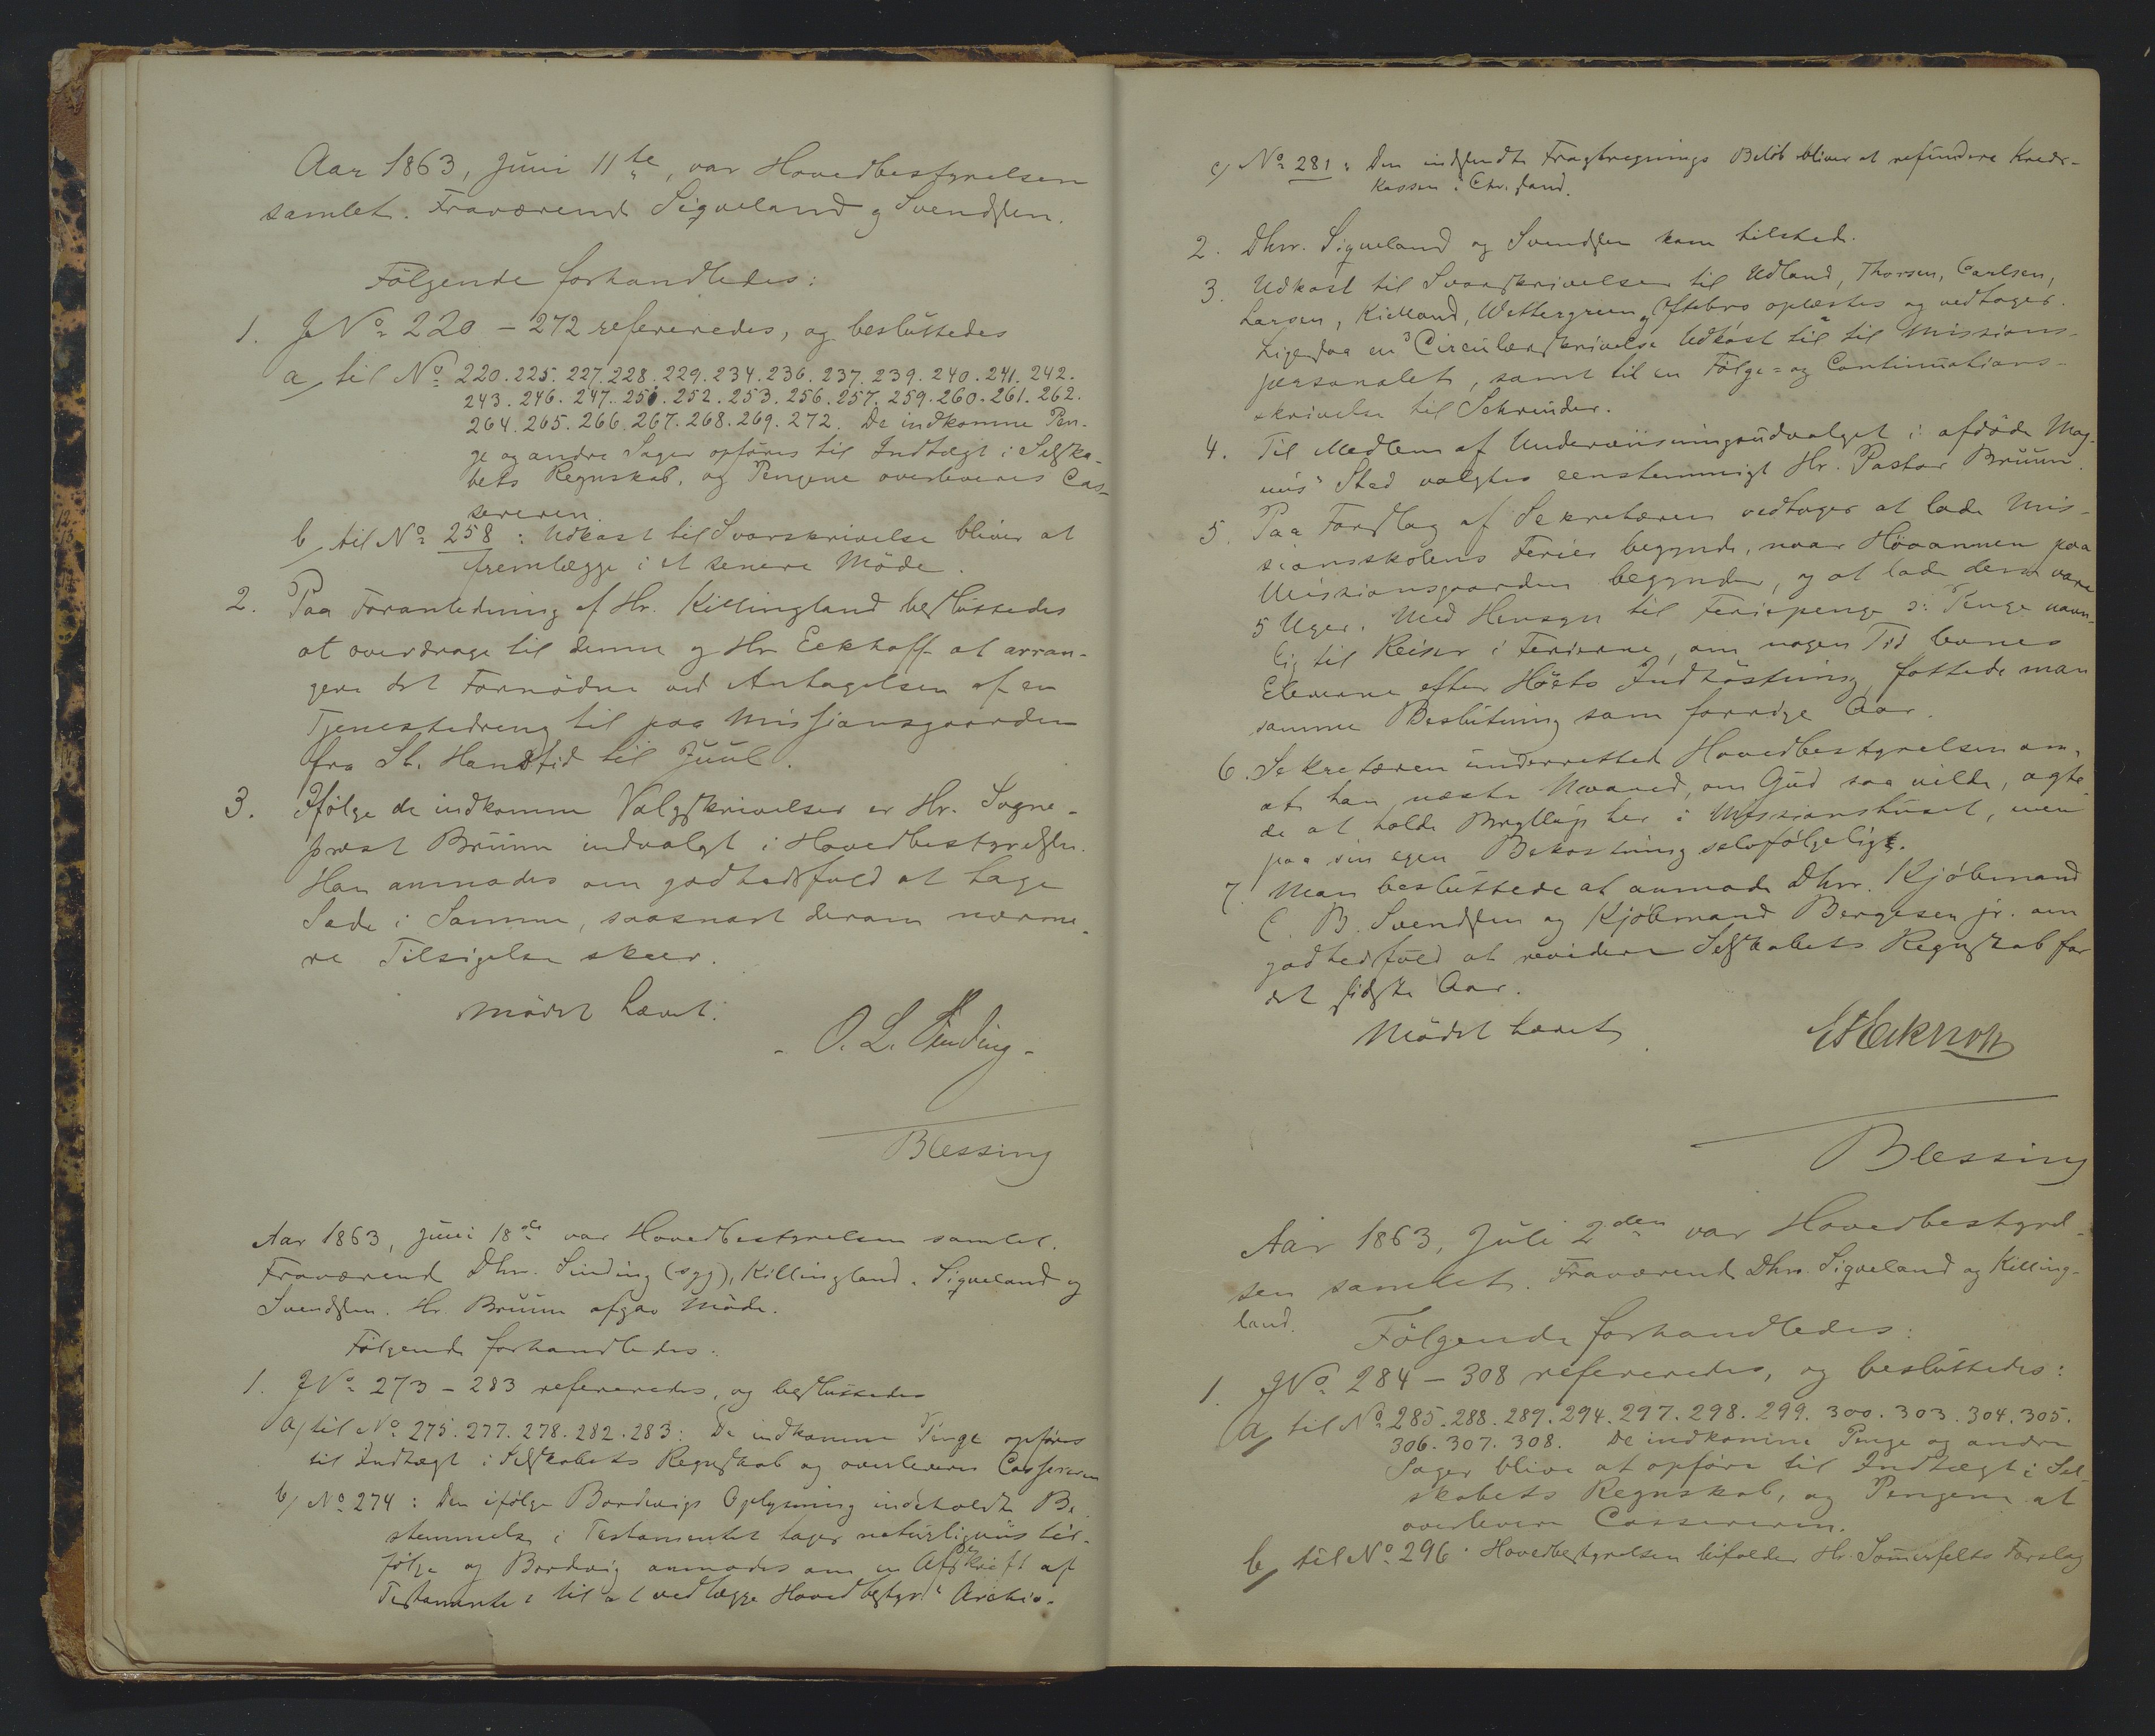 Aar 1863, Juni 11te, var Hovedbestyrelsen
samlet. Fraværende Siqveland og Svendsen.
Følgende forhandledes:
1. J No 220 – 272 refereredes, og besluttedes
a, til No 220. 225. 227. 228. 229. 234. 236. 237. 239. 240. 241. 242.
243. 246. 247. 250. 252. 253. 256. 257. 259. 260. 261. 262.
264. 265. 266. 267. 268. 269. 272. De indkomne Pen-
ge og andre Sager opføres til Indtægt i Selska-
bets Regnskab, og Pengene overleveres Cas-
sereren.
b, til No 258: Udkast til Svarskrivelse bliver at
fremlægge i et senere Møde.
2. Paa Foranledning af Hr. Killingland besluttedes
at overdrage til denne og Hr Eckhoff at arran-
gere det Fornødne ved Antagelsen af en
Tjenestedreng til paa Missionsgaarden
fra St. Hanstid til Juul.
3. Ifølge de indkomne Valgskrivelser er Hr. Sogne-
præst Bruun indvalgt i Hovedbestyrelsen.
Han anmodes om godhedsfuld at tage
Sæde i Samme, saasnart derom nærme-
re Tilsigelse skeer.
Mødet hævet.
O. L. Sinding
Blessing
Aar 1863, Juni 18de var Hovedbestyrelsen samlet.
Fraværende Dhrr. Sinding (syg), Killingland, Siqveland og
Svendsen. Hr. Bruun afgav Møde.
Følgende forhandledes:
1. J No 273 – 283 refereredes, og besluttedes
a, til No 275. 277. 278. 282. 283: De indkomne Penge opføres
til Indtægt i Selskabets Regnskab og overleveres Cassereren
b, No 274: Den ifølge Bordevigs Oplysning indeholdte Be-
stemmelse i Testamentet tages naturligviis til-
følge og Bordevig anmodes om en Afskrift af
Testamentet til at vedlægge Hovedbestyr.s Archiv.
c, No 281: Den indsendte Fragtregnings Beløb bliver at refundere Kreds-
kassen i Chr.sand.
2. Dhrr. Siqveland og Svendsen kom tilstede.
3. Udkast til Svarskrivelser til Udland, Thorsen, Carlsen,
Larsen, Kielland, Wettergreen og Oftebro oplæstes og vedtoges.
Ligesaa en Circulærskrivelse Udkast til til Missions-
personalet, samt til en Følge- og Continuations-
skrivelse til Schreuder.
4. Til Medlem af Underviisningsudvalget i afdøde Mag-
nus' Sted valgtes eenstemmigt Hr. Pastor Bruun.
5. Paa Forslag af Sekretæren vedtoges at lade Mis-
sionsskolens Ferier begynde, naar Høaannen paa
Missionsgaarden begynder, og at lade dem vare
5 Uger. Med Hensyn til Feriepenge ɔ: Penge navn-
lig til Reiser i Ferierne, om nogen Tid levnes
Eleverne efter Høets Indhøstning, fattede man
samme Beslutning som forrige Aar.
6. Sekretæren underrettede Hovedbestyrelsen om,
at han næste Maaned, om Gud saa vilde, agte-
de at holde Bryllup her i Missionshuset, men
paa sin egen Bekostning selvfølgelig.
7. Man besluttede at anmode Dhrr. Kjøbmand
C. B. Svendsen og Kjøbmand Bergesen jr. om
godhedsfuld at revidere Selskabets Regnskab for
det sidste Aar.
Mødet hævet
Eckhoff
Blessing
Aar 1863, Juli 2den var Hovedbestyrel-
sen samlet. Fraværende Dhrr. Siqveland og Killing-
land.
Følgende forhandledes:
1. J No 284 – 308 refereredes, og besluttedes:
a, til No 285. 288. 289. 294. 297. 298. 299. 300. 303. 304. 305.
306. 307. 308. De indkomne Penge og andre
Sager blive at opføre til Indtægt i Sel-
skabets Regnskab, og Pengene at
overlevere Cassereren.
b, til No 296. Hovedbestyrelsen bifalder Hr. Sommerfelts Forslag